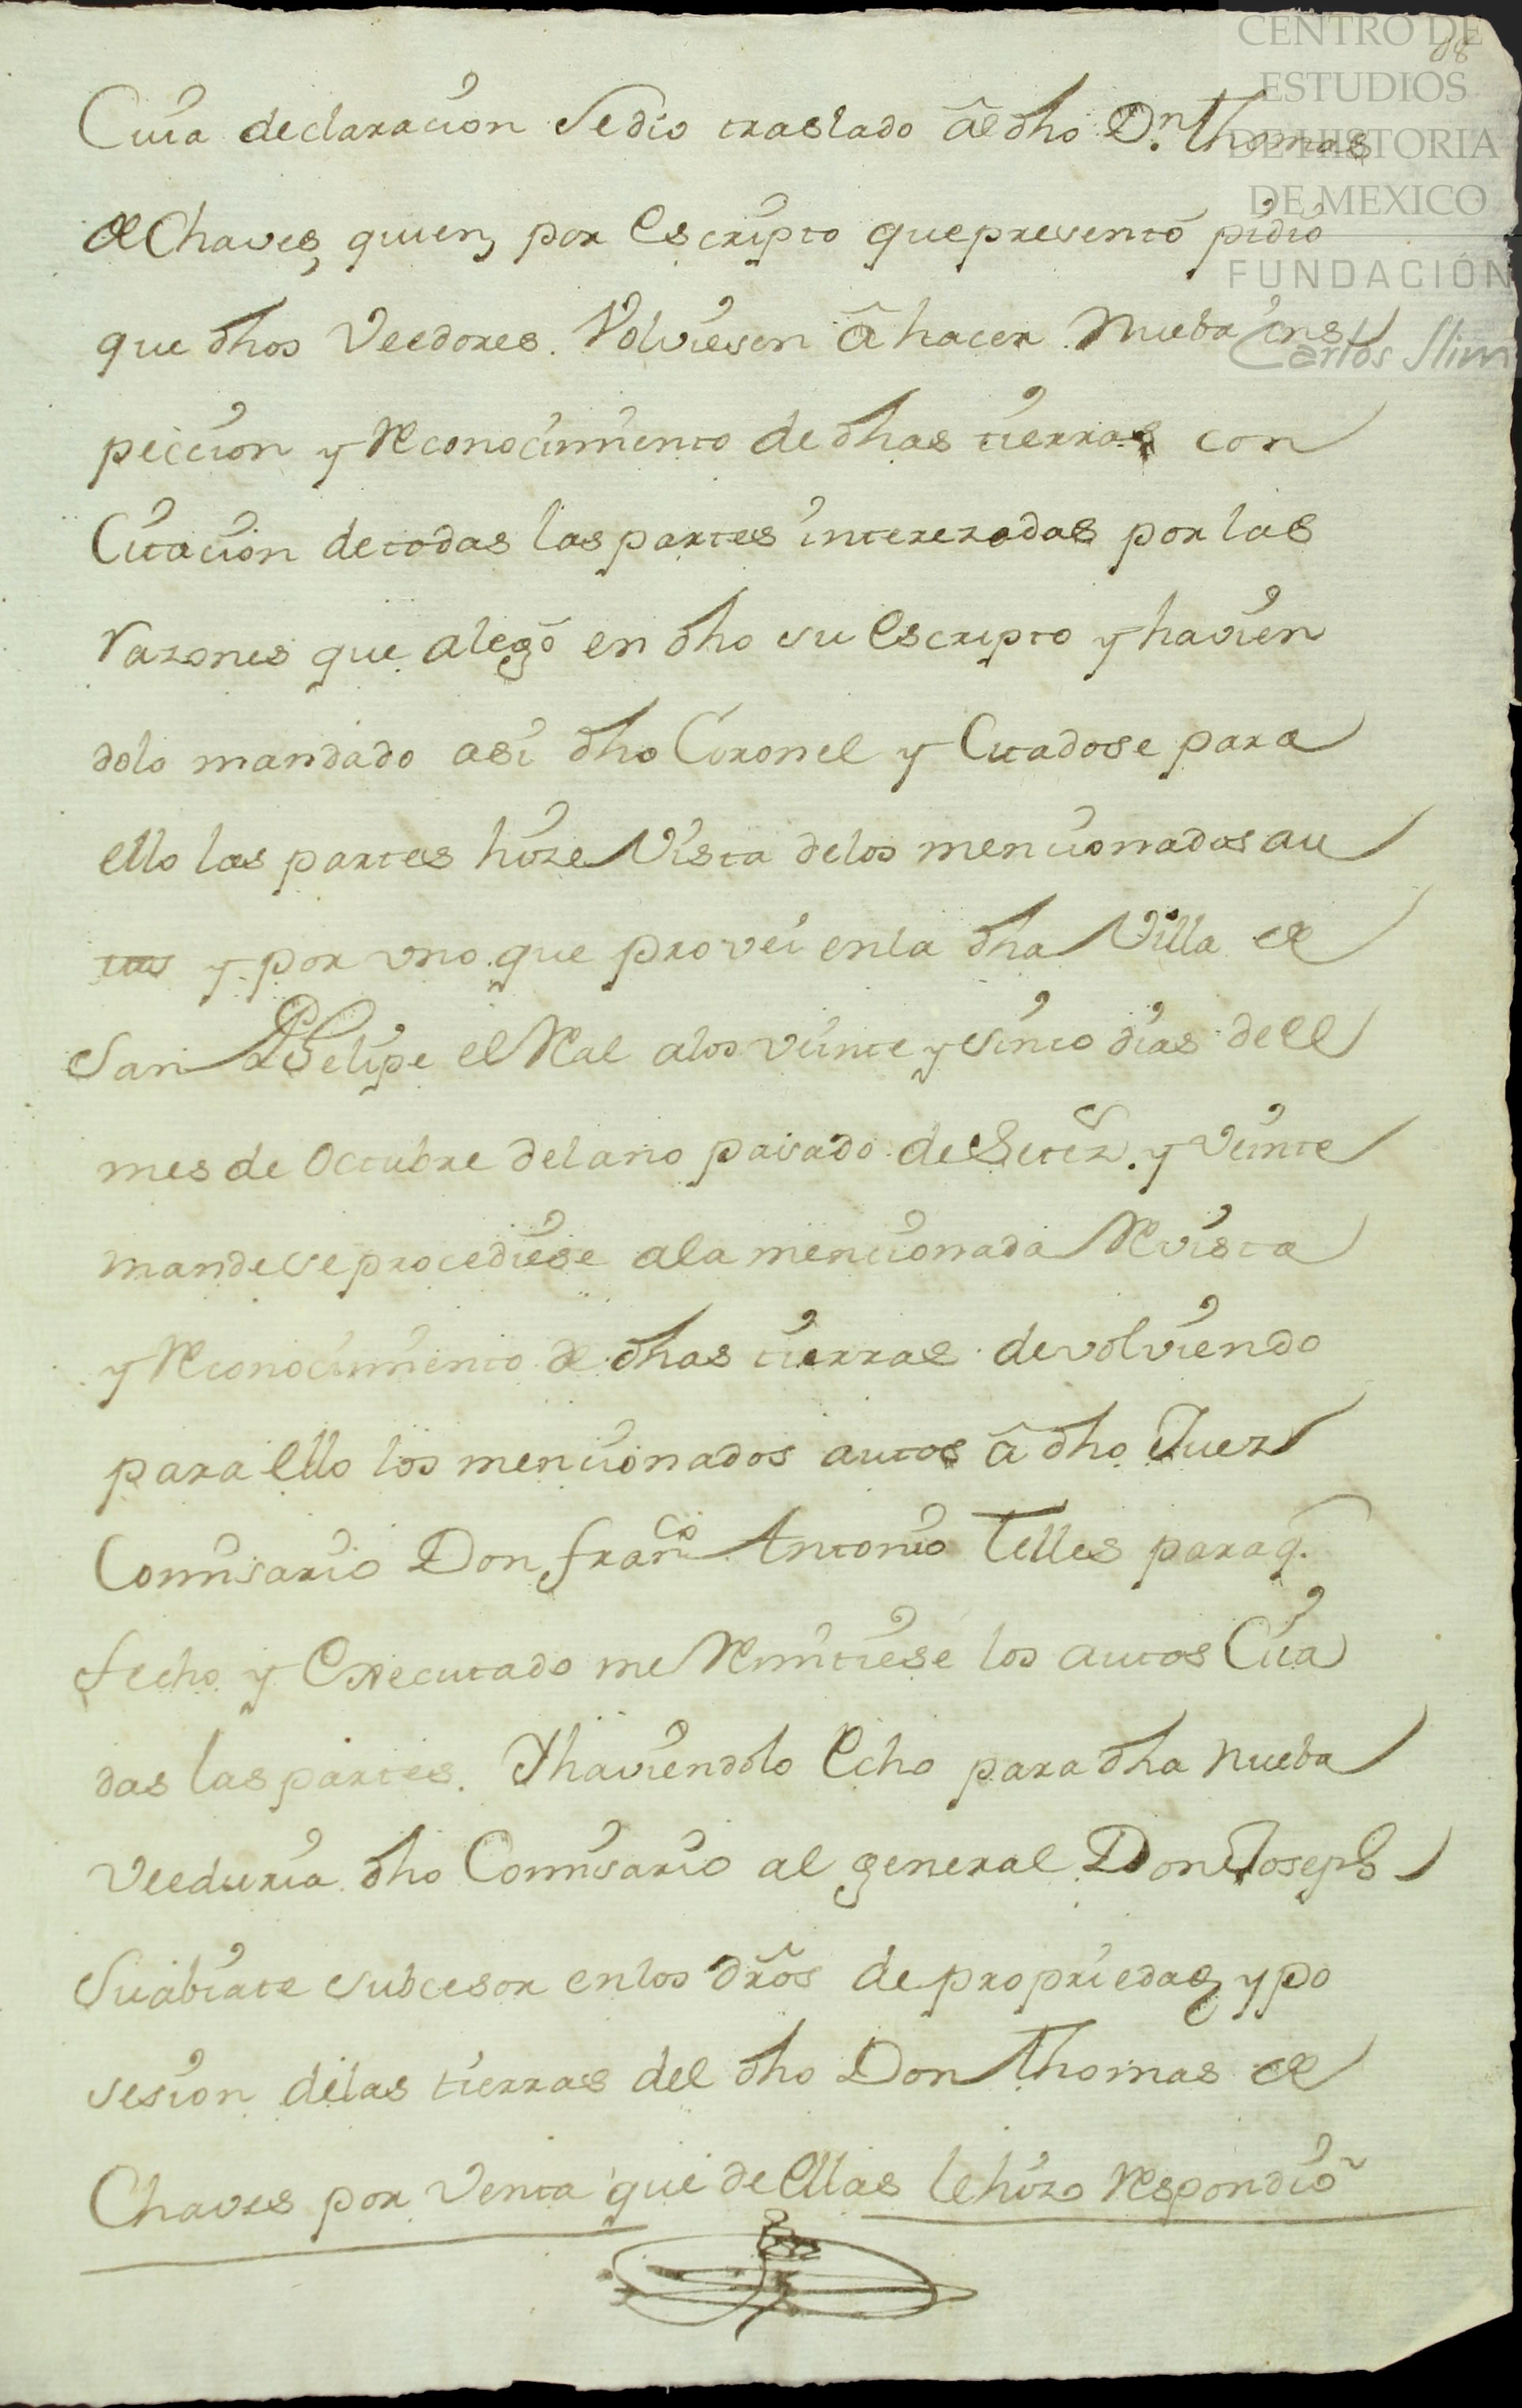 68
CENTRO DE
ESTUDIOS
DE HISTORIA
DE MEXICO
FUNDACIÓN
Carlos Slim
Cuia declaracion Sedio traslado â el dho Dn. Thomas
de Chaves, quien, por escripto quepresentó pidió
que dhos Veedores. Volviesen â hacer nueba ins
peccion y Reconocimiento de dhas tierras con
Citacion detodas las partes interezadas por las
razones que alegó en dho su escripto y havien
dolo mandado asi dho Coronel y Citadose para
ello las partes hize Vista delos mencionados au
tos y por uno que provei enla dha Villa de
San Phelipe el Real alos veinte y sinco dias de el
mes de Octubre delano pasado de Setez.s y Veinte
mande se procediese ala mencionada Revista
y Reconocimiento de dhas tierras devolviendo
para ello los mencionados autos â dho Juez
Comisario Don Franco Antonio Telles paraq.
fecho y Executado me Remitiese los autos Cita
das las partes. Y haviendolo Echo para dha nueba
Veeduria dho Comisario al general Don Joseph
Suabiate subcesor enlos dros de propriedad, y po
sesion delas tierras del dho Don Thomas de
Chaves por Venta que de ellas lehizo respondió